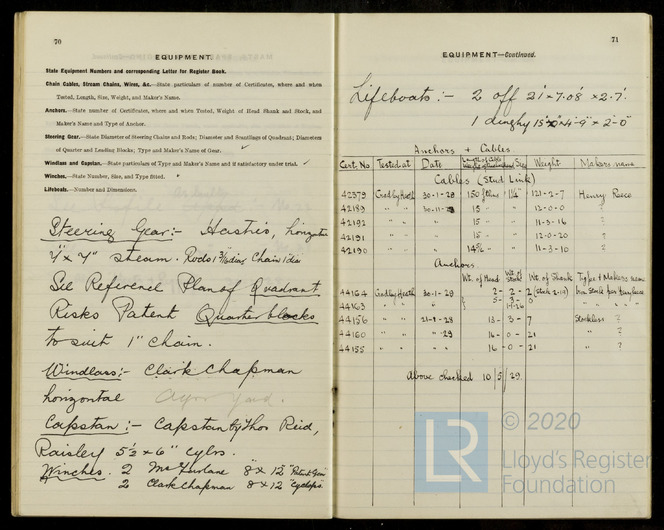 70
EQUIPMENT.
State Equipment Numbers and corresponding Letter for Register Book.
Chain Cables, Stream Chains, Wires, &c.—State particulars of number of Certificates, where and when
Tested, Length, Size, Weight, and Maker's Name.
Anchors.—State number of Certificates, where and when Tested, Weight of Head Shank and Stock, and
Maker's Name and Type of Anchor.
Steering Gear.—State Diameter of Steering Chains and Rods; Diameter and Scantlings of Quadrant; Diameters
of Quarter and Leading Blocks; Type and Maker's Name of Gear. ✓
Windlass and Capstan.—State particulars of Type and Maker's Name and if satisfactory under trial. ✓
Winches.—State Number, Size, and Type fitted.
Lifeboats.—Number and Dimensions.
Steering Gear:- Hasties, horizontal
7" x 7" steam. Rods 1 3/16 diar Chain 1" dia
See Reference Plan of Quadrant
Risks Patent Quarter blocks
to suit 1" chain.
Windlass:- Clark Chapman
horizontal
Capstan:- Capstan by Thos Reid,
Paisley 5½ x 6" cylrs.
Winches. 2 McFarlane 8" x 12"
2 Clark Chapman 8 x 12 "Cyclops"
71
EQUIPMENT—Continued.
Lifeboats:- 2 off 21' x 7.08' x 2.7'.
1 dinghy 15'0" x 4'-9" x 2'-0"
Anchors + Cables
Cert. No Tested at Date Size Weight Makers name
Cables (Stud Link)
42379 Cradley Heath 30-1-29 150 fthms 1¼" 121-2-7 Henry Reece
42189 " " 15 " " 12-0-0 "
42192 " " " 15 " " 11-3-16 "
42191 " " " 15 " " 12-0-20 "
42190 " " " " 11-3-10 "
Anchors
Wt. of Head Wt. of Stock Wt. of Shank Type + Makers name
44164 Cradley Heath 30-1-29 2-2-2
44163
44156 " " 21-1-28 13-3-7 Stockless
44160 " " " -29 16-0-21 "
44155 " " " " 16-0-21 "
Above checked 10/5/29.
© 2020
LR
Lloyd's Register
Foundation